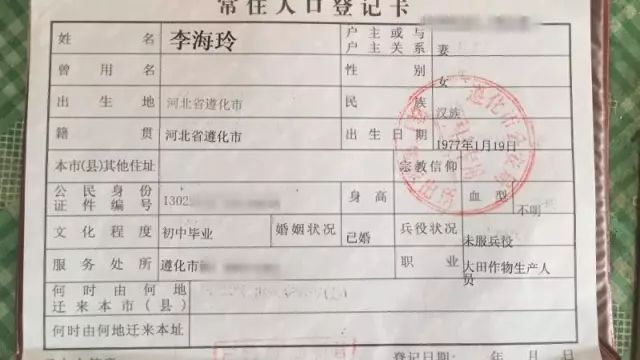 常住人口登记卡
姓 名 李海玲 户主或与户主关系 妻
曾用名 性别 女
出生地 河北省遵化市 民族 汉族
籍贯 河北省遵化市 出生日期 1977年1月19日
本市(县)其他住址 宗教信仰
公民身份证件编号 1302 身高 血型 不明
文化程度 初中毕业 婚姻状况 已婚 兵役状况 未服兵役
服务处所 遵化市 职业 大田作物生产人员
何时由何地迁来本市(县)
何时由何地迁来本址
登记日期: 年 月 日